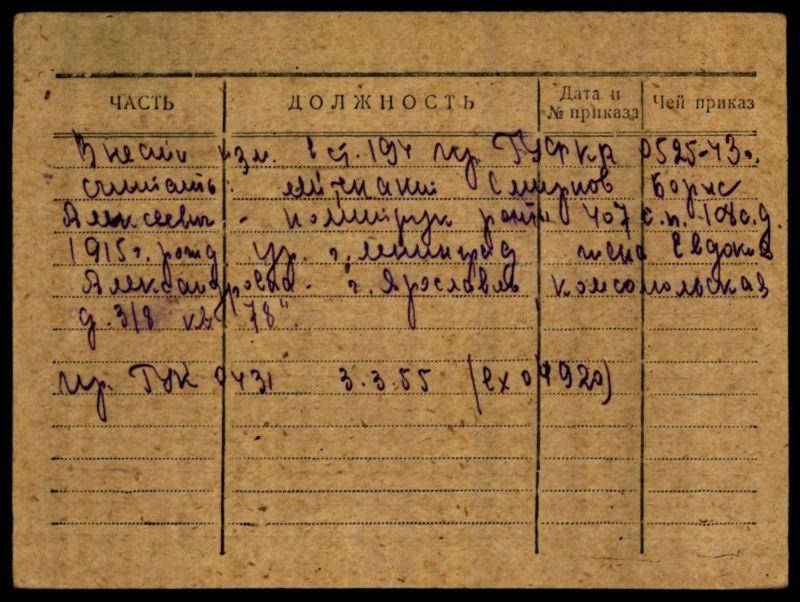 ЧАСТЬ ДОЛЖНОСТЬ Дата и № приказа Чей приказ
Внести изм. в ст. 194 пр. ГУФКР 0525-43г.
считать: Мл. Смирнов Борис
Алексеевич - политрук роты 407 с.п. 108 с.д.
1915 г. рожд. ур. г. Ленинград жена Евдокия
Александровна - г. Ярославль, Комсомольская
д. 3/8 кв "78".
пр. ГУК 0431 3.3.55 (вх 04920)